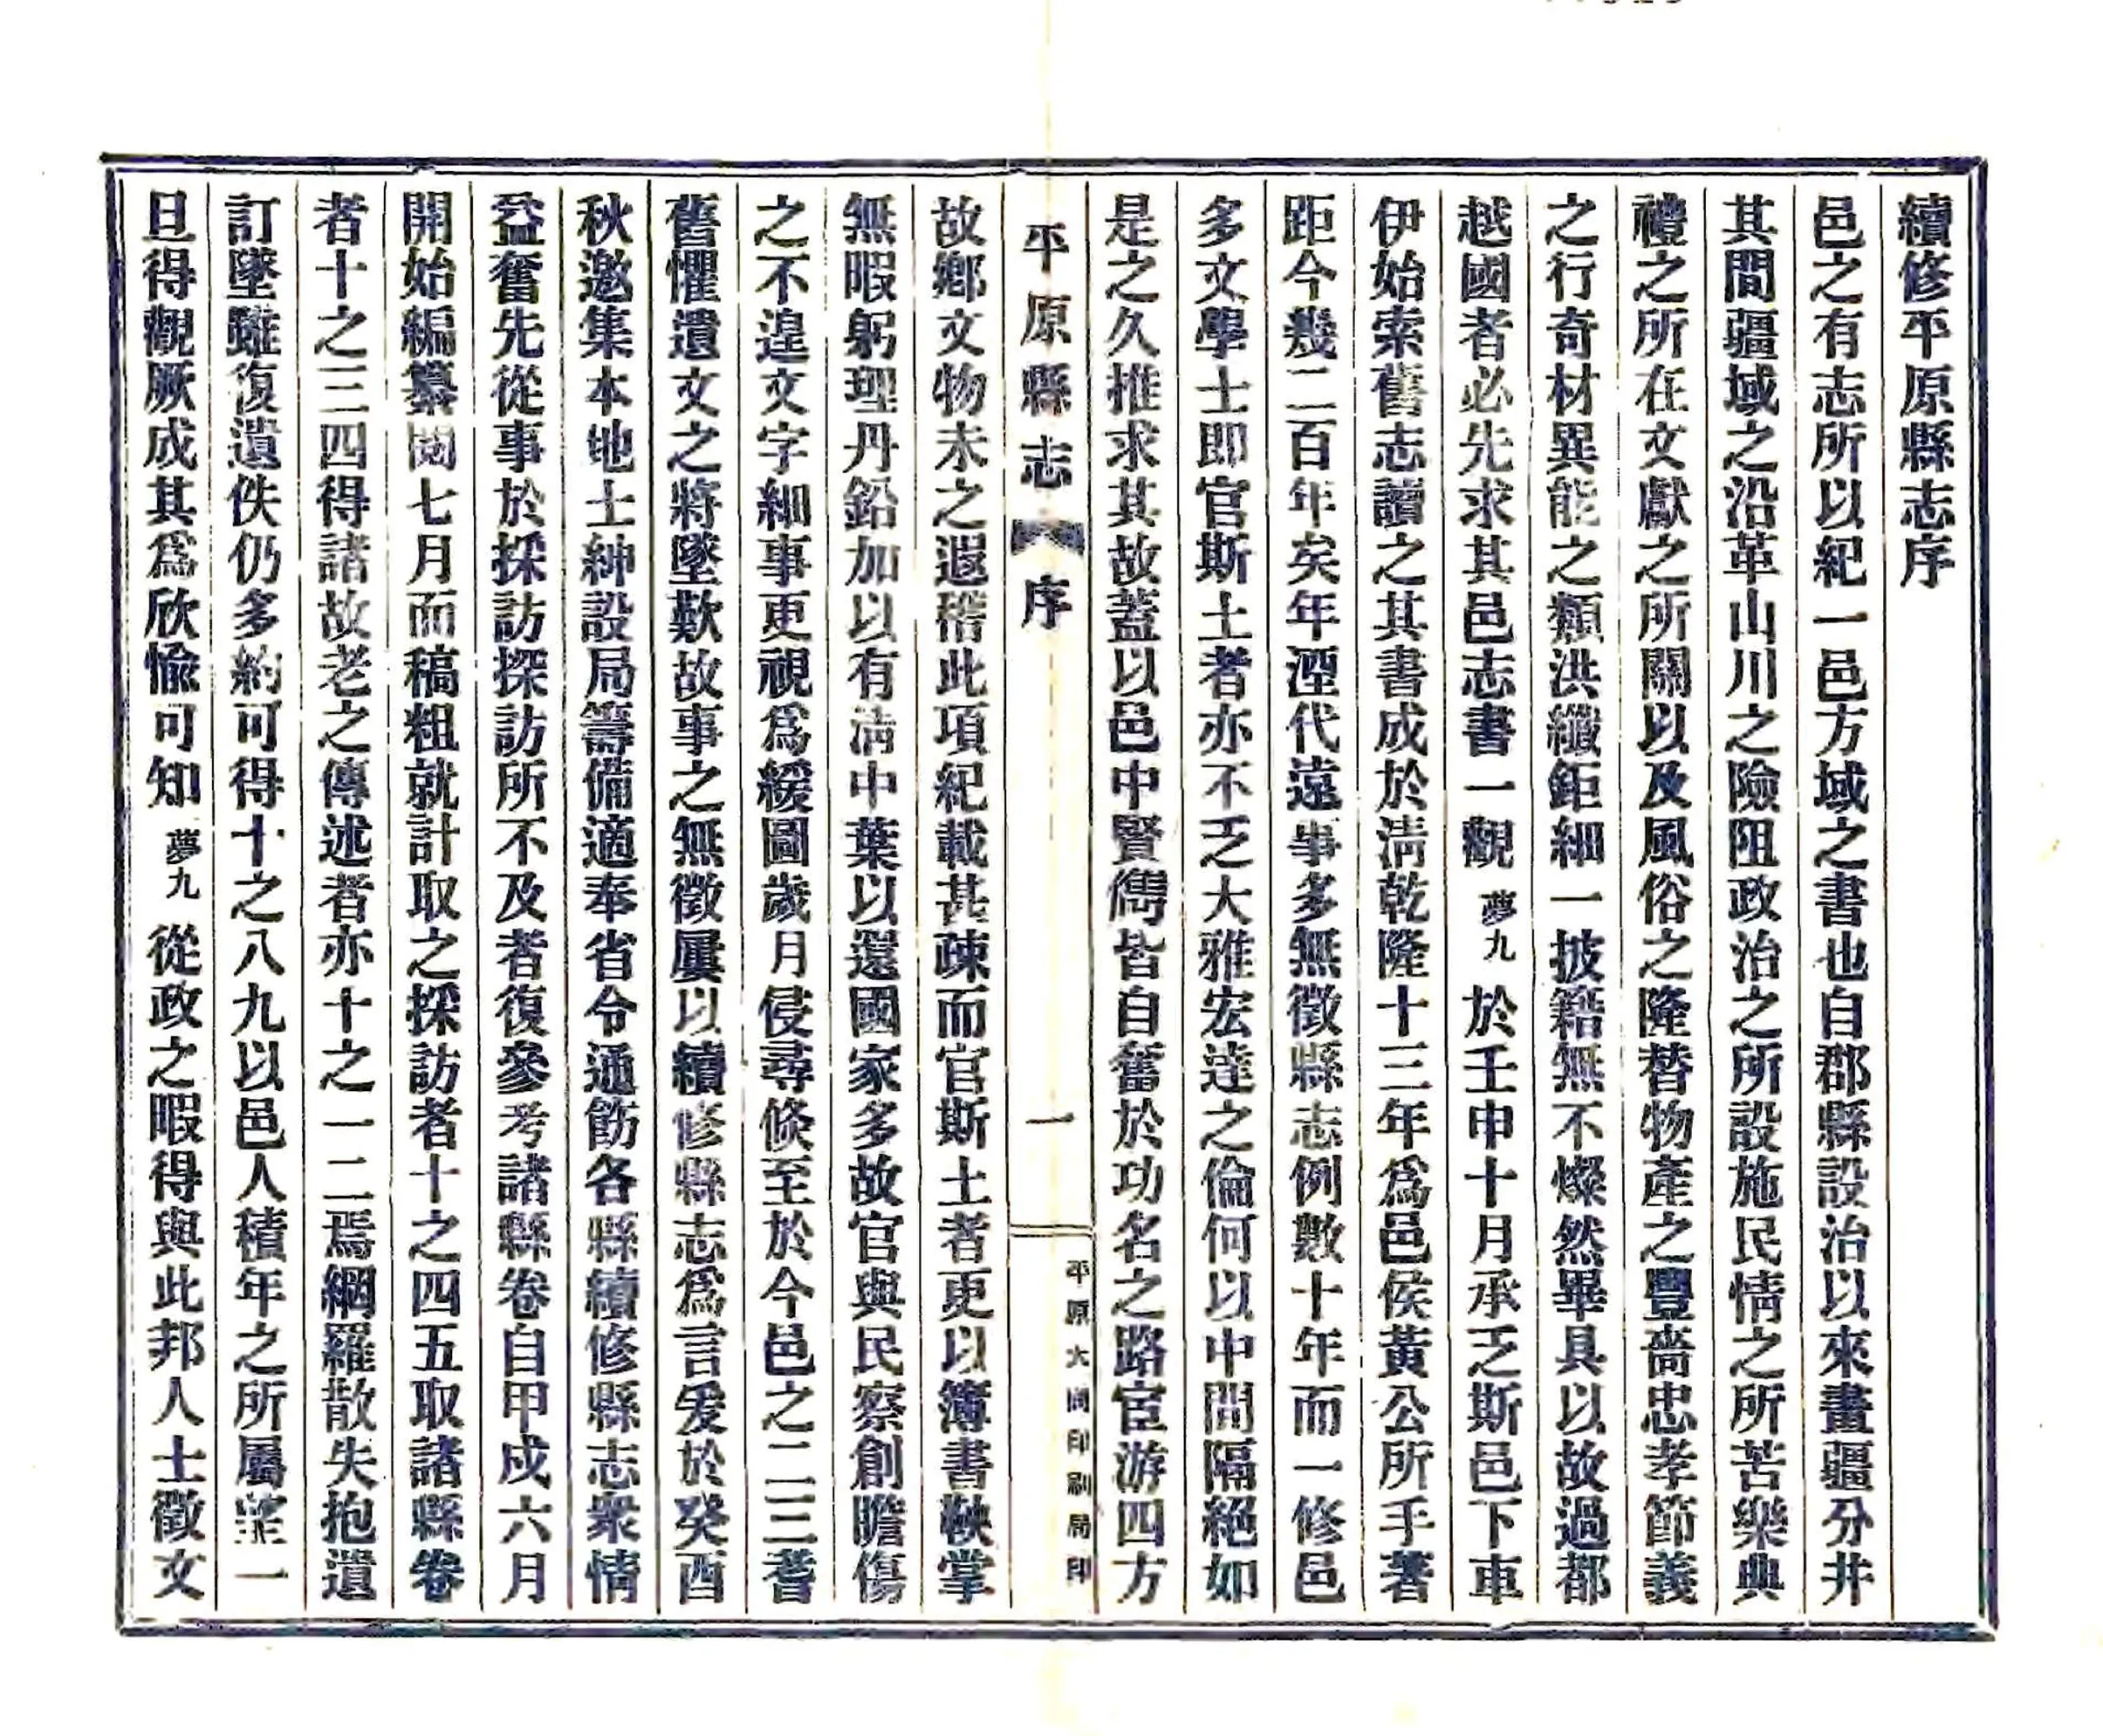 續修平原縣志序
邑之有志所以紀一邑方域之書也自郡縣設治以來畫疆分井
其間疆域之沿革山川之險阻政治之所設施民情之所苦樂典
禮之所在文獻之所關以及風俗之隆替物產之豐嗇忠孝節義
之行奇材異能之類洪纖鉅細一披籍無不燦然畢具以故過都
越國者必先求其邑志書一觀夢九於壬申十月承乏斯邑下車
伊始索舊志讀之其書成於清乾隆十三年爲邑侯黃公所手著
距今幾二百年矣年湮代遠事多無徵縣志例數十年而一修邑
多文學士即官斯土者亦不乏大雅宏達之倫何以中間隔絕如
是之久推求其故蓋以邑中賢儁皆自奮於功名之路宦游四方
平原縣志 序 一 平原大同印刷局印
故鄉文物未之遑稽此項紀載甚疎而官斯土者更以簿書鞅掌
無暇躬理丹鉛加以有清中葉以還國家多故官與民察創瞻傷
之不遑文字細事更視爲緩圖歲月侵尋倏至於今邑之二三耆
舊懼遺文之將墜歎故事之無徵屢以續修縣志爲言爰於癸酉
秋邀集本地士紳設局籌備適奉省令通飭各縣續修縣志衆情
益奮先從事於採訪探訪所不及者復參考諸縣卷自甲戍六月
開始編纂閱七月而稿粗就計取之採訪者十之四五取諸縣卷
者十之三四得諸故老之傳述者亦十之一二焉網羅散失抱遺
訂墜雖復遺佚仍多約可得十之八九以邑人積年之所屬望一
旦得觀厥成其爲欣愉可知夢九從政之暇得與此邦人士徵文